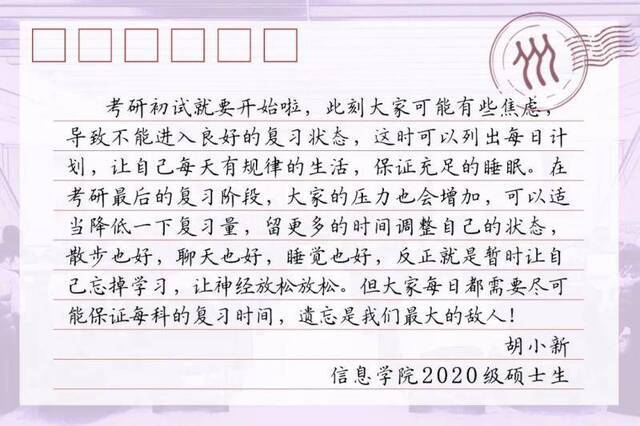 考研初试就要开始啦，此刻大家可能有些焦虑，
导致不能进入良好的复习状态，这时可以列出每日计
划，让自己每天有规律的生活，保证充足的睡眠。在
考研最后的复习阶段，大家的压力也会增加，可以适
当降低一下复习量，留更多的时间调整自己的状态，
散步也好，聊天也好，睡觉也好，反正就是暂时让自
己忘掉学习，让神经放松放松。但大家每日都需要尽可
能保证每科的复习时间，遗忘是我们最大的敌人！
胡小新
信息学院2020级硕士生